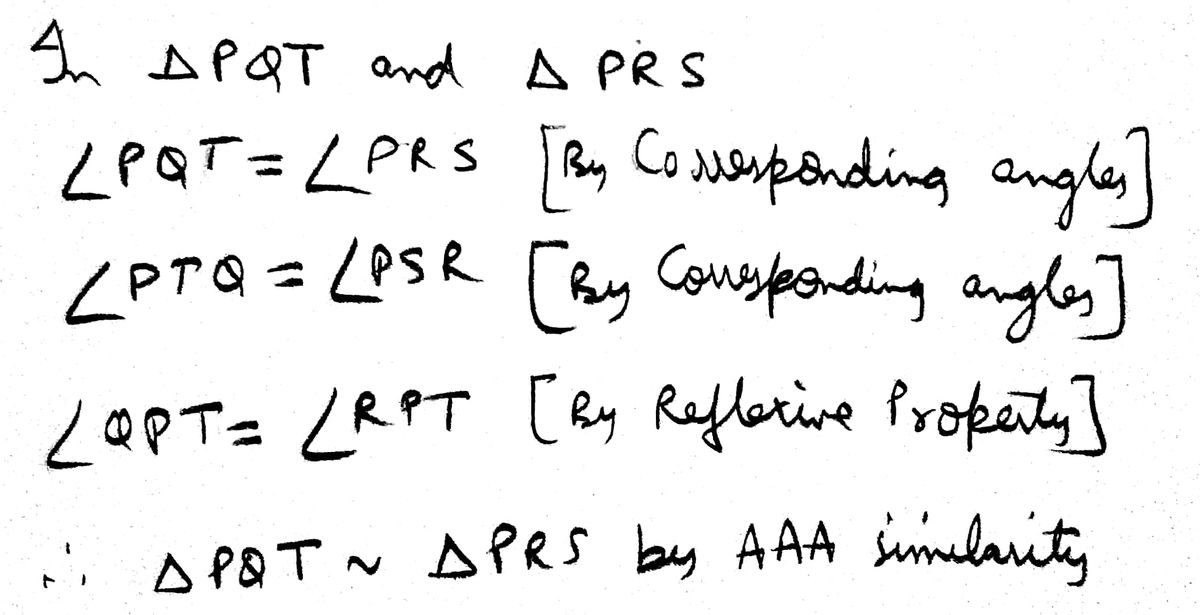 In Δ PQT and Δ PRS
∠PQT = ∠PRS [By Corresponding angles]
∠PTQ = ∠PSR [By Corresponding angles]
∠QPT = ∠RPT [By Reflexive Property]
∴ Δ PQT ~ Δ PRS by AAA similarity